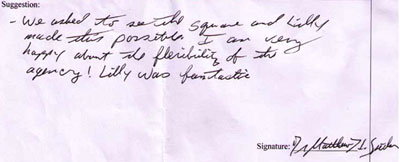 Suggestion:
- We asked to see the square and Lilly
made this possible I am very
happy about the flexibility of the
agency! Lilly was fantastic
Signature: Dr Matthew L